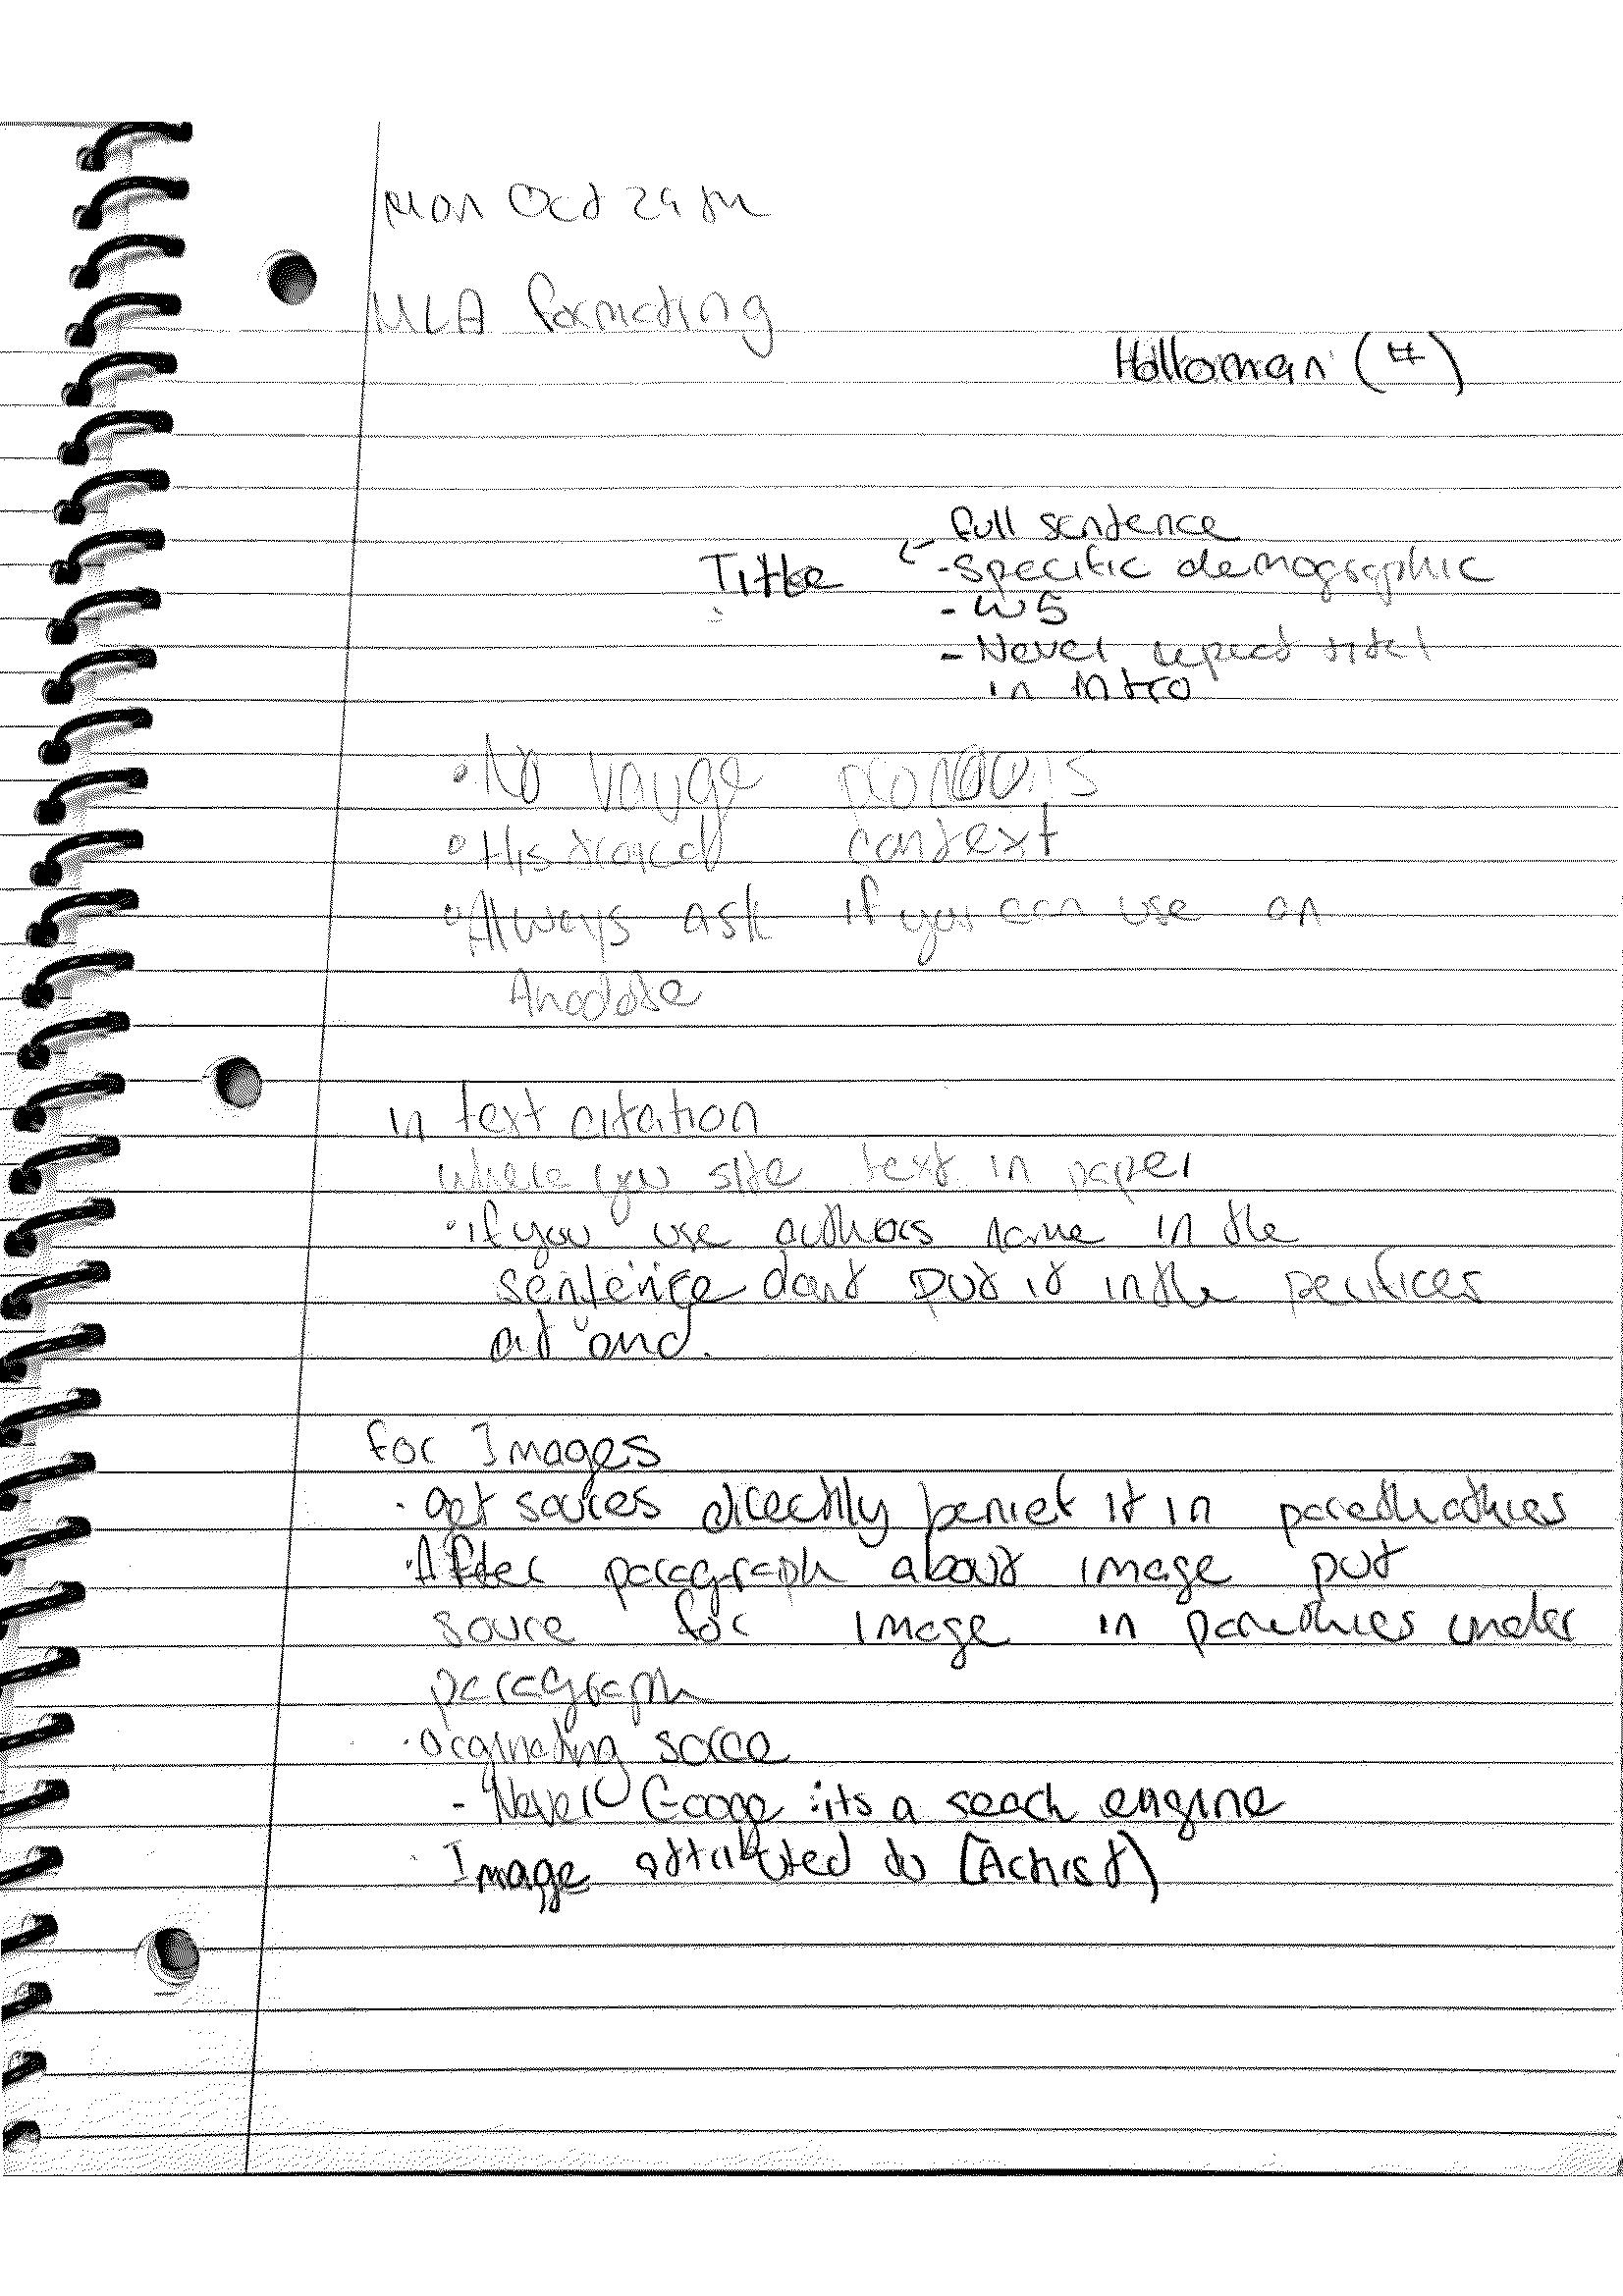 Mon Oct 29th
MLA formating
Holloman (#)
full sentence
Title - Specific demographic
- W5
- Never repeat titel
in intro
• No vauge pronouns
• Historical context
• Always ask if you can use an
Anodote
in text citation
where you site text in paper
• if you use authors name in the
sentence dont put it in the
at end.
for Images
• get soures directly it in
• After paragraph about image put
soure for image in under
paragraph
• orginating sorce
- Never Google : its a seach engine
• Image attributed to (Artist)